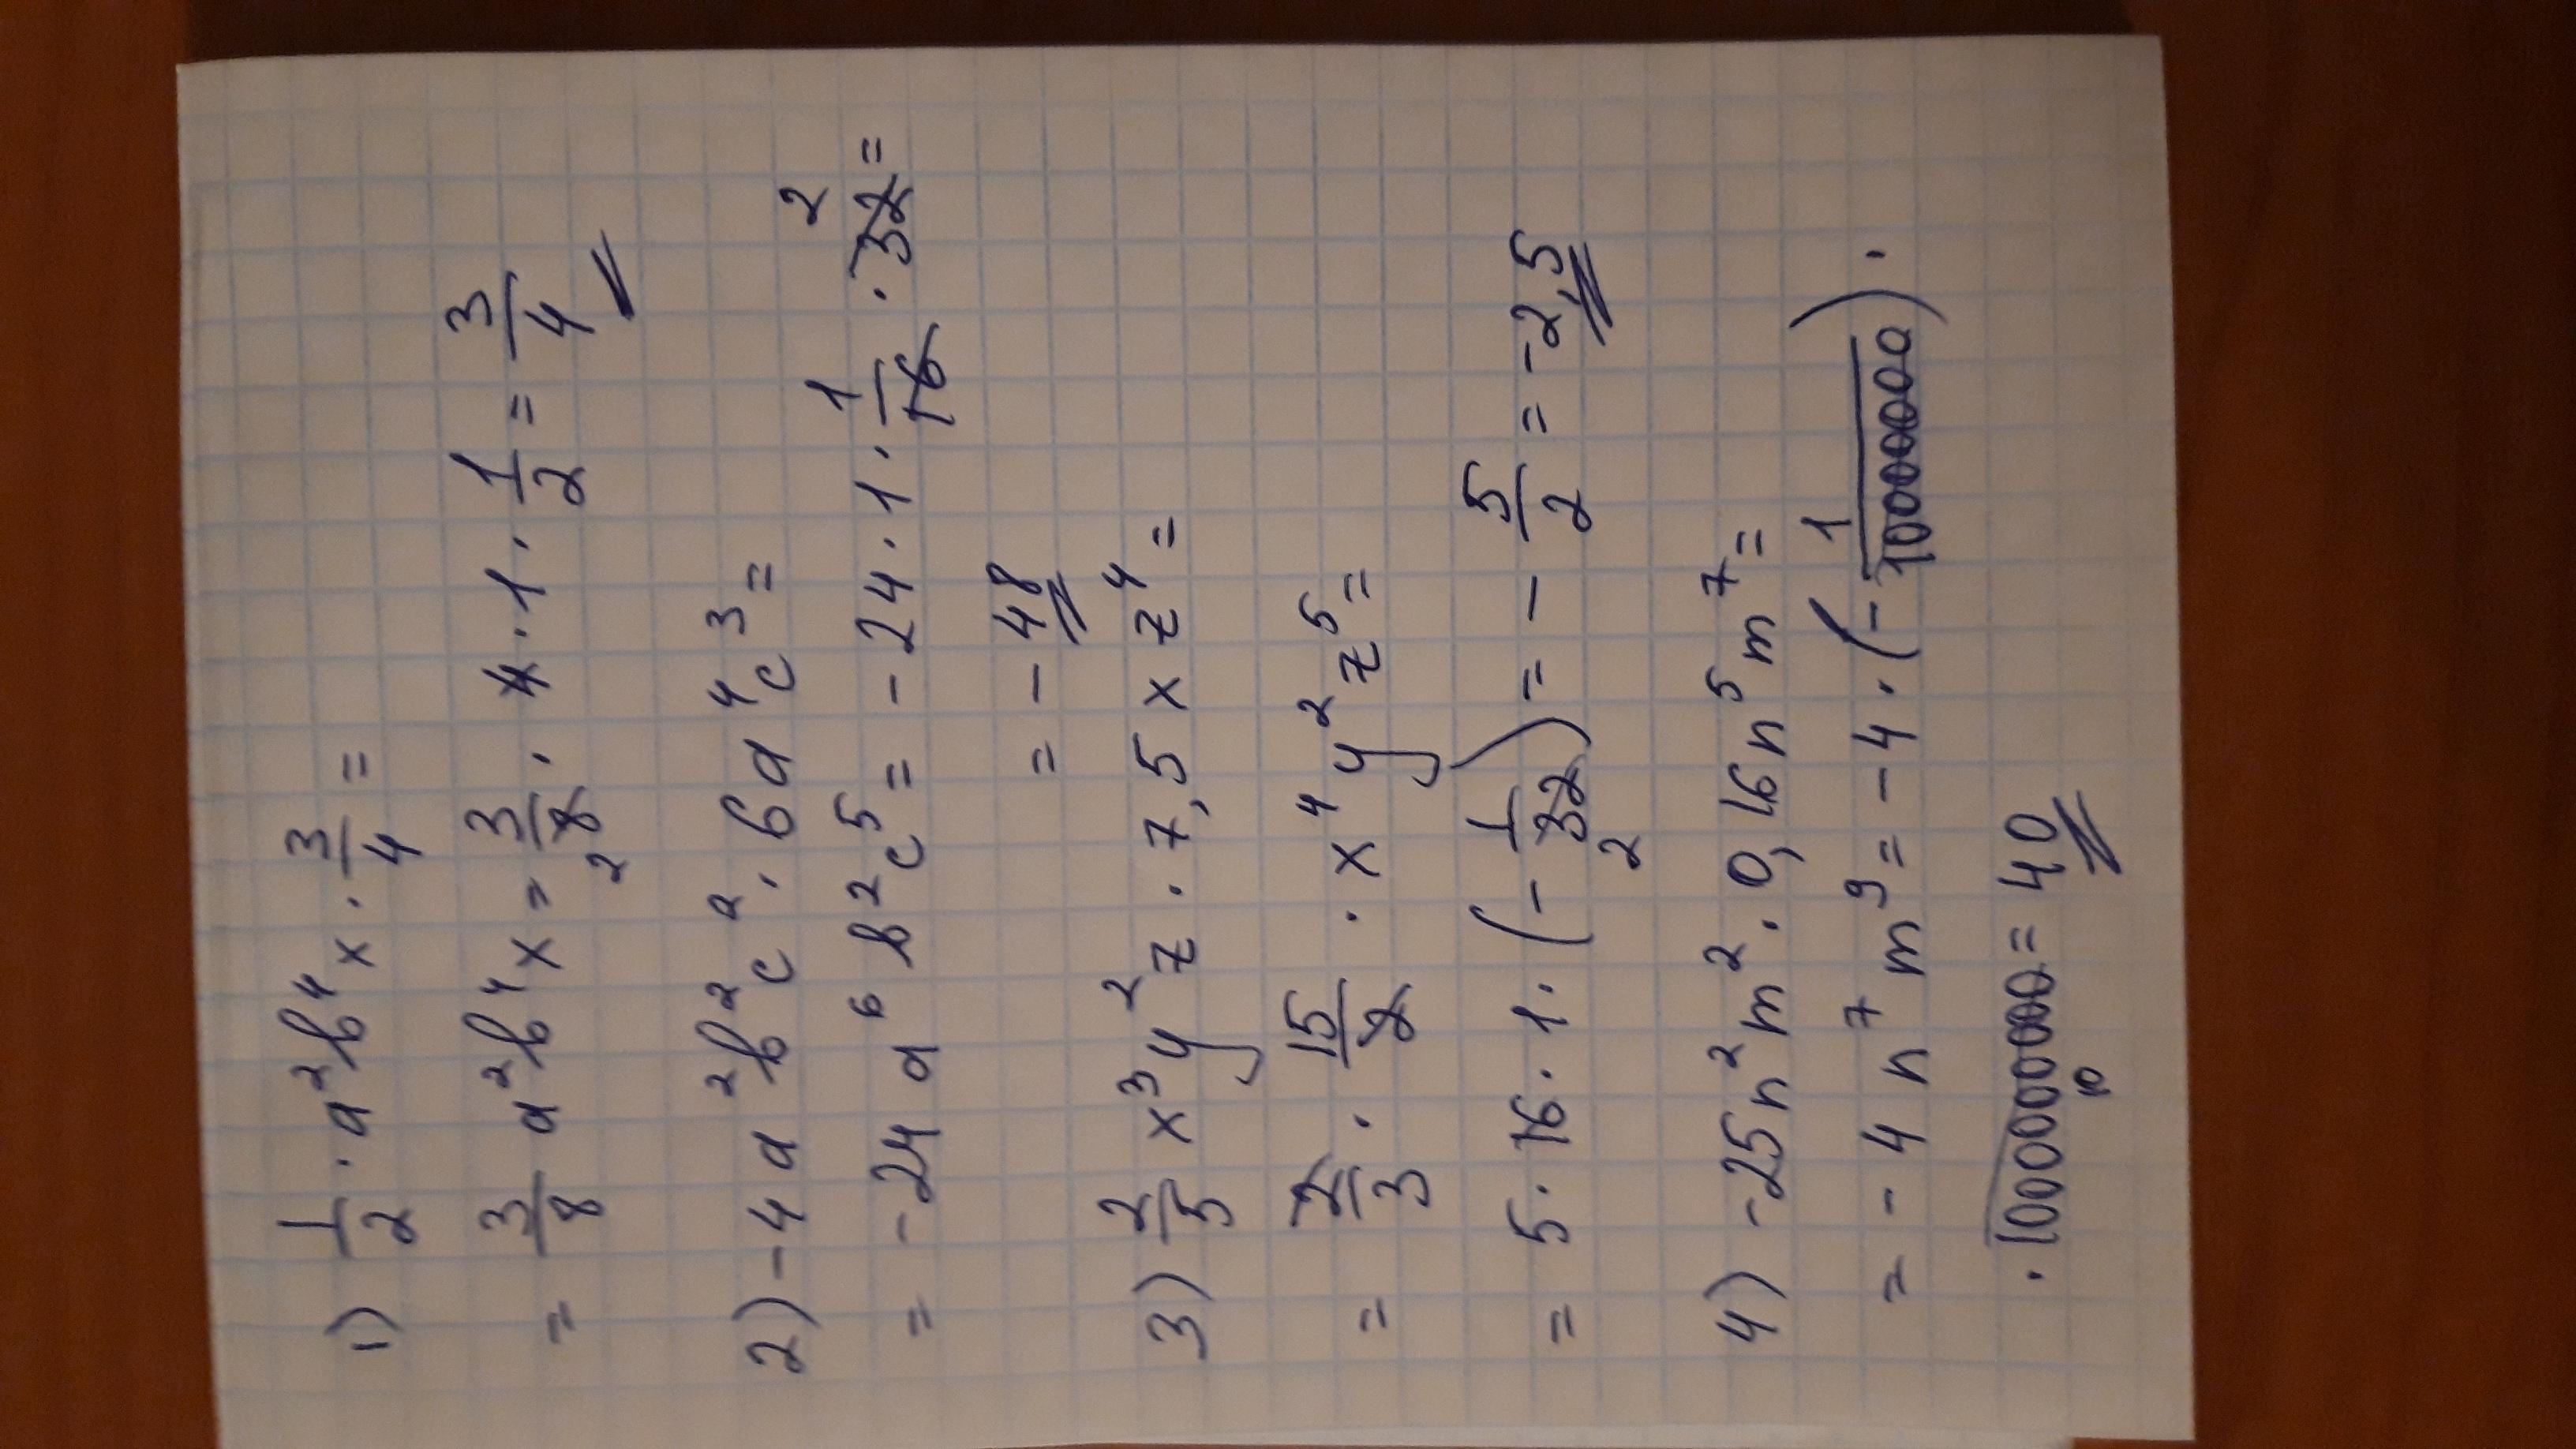 1) 1/2 · a²b⁴x · 3/4 =
= 3/8 a²b⁴x = 3/8 2 · 4 · 1 · 1/2 = 3/4
2) -4a²b²c² · 6a⁴c³ =
= -24a⁶b²c⁵ = -24 · 1 · 1/16 · 32 2 =
= -48
3) 2/3 x³y²z · 7,5xz⁴ =
= 2/3 · 15/2 · x⁴y²z⁵ =
= 5 · 16 · 1 · (-1/32 2) = -5/2 = -2,5
4) -25n²m² · 0,16n⁵m⁷ =
= -4n⁷m⁹ = -4 · (-1/10000000) ·
· 1000000000 10 = 40